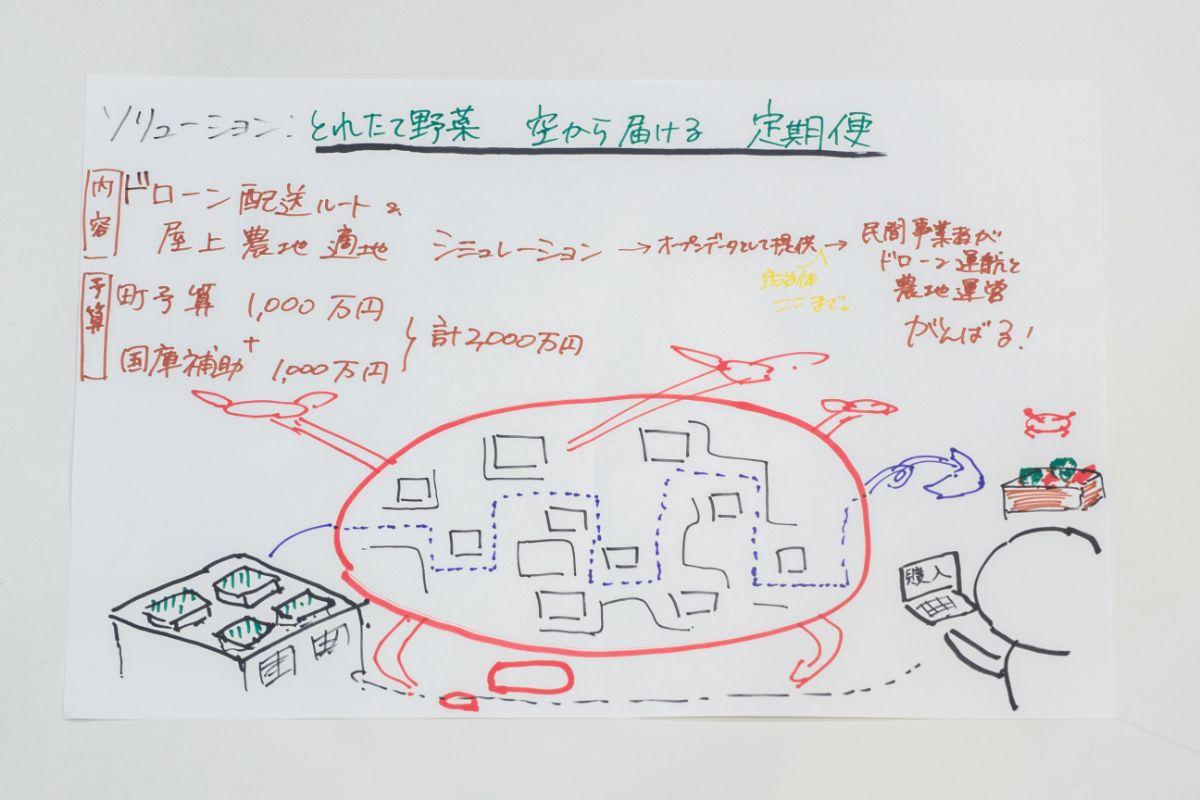 ソリューション: とれたて野菜 空から届ける 定期便
内容
ドローン配送ルート&
屋上農地適地 シミュレーション → オープンデータとして提供 →
民間事業者が
ドローン運航と
農地運営
がんばる!
自治体
ここまで。
予算
町予算 1,000万円
+
国庫補助 1,000万円
計2,000万円
購入